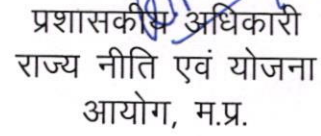 प्रशासकीय अधिकारी
राज्य नीति एवं योजना
आयोग, म.प्र.